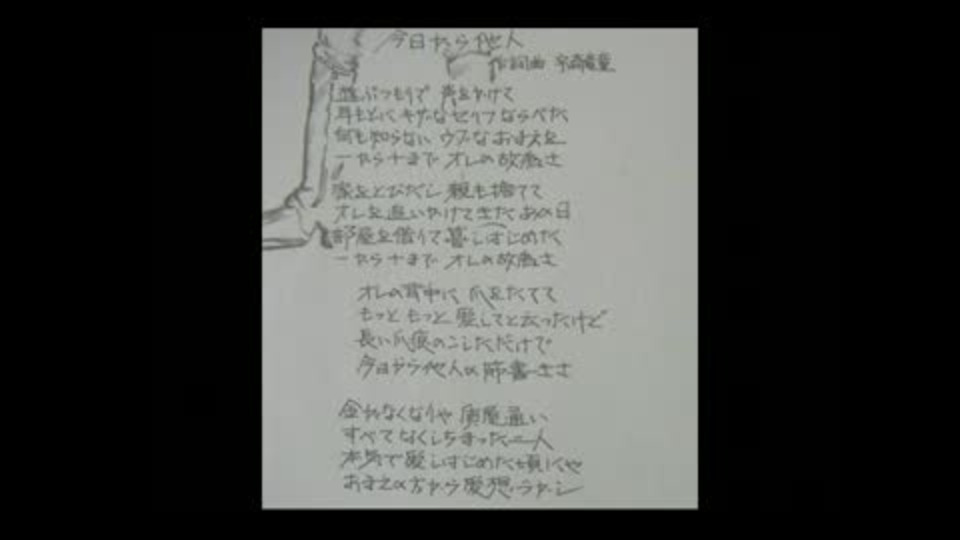 今日から他人
作詞曲 宇崎竜童
遊ぶつもりで 声をかけて
耳もとに キザなセリフ ならべた
何も知らない ウブなおまえを
一から十まで オレの好みさ
家をとびだし 親も捨てて
オレを追いかけてきた あの日
部屋を借りて 暮しはじめた
一から十まで オレの好みさ
オレの背中に 爪をたてて
もっと もっと 愛してと云ったけど
長い爪痕のこしただけで
今日から他人の筋書きさ
金がなくなりゃ 質屋通い
すべてなくしちまった二人
本気で愛しはじめた頃にゃ
おまえの方から愛想づかし